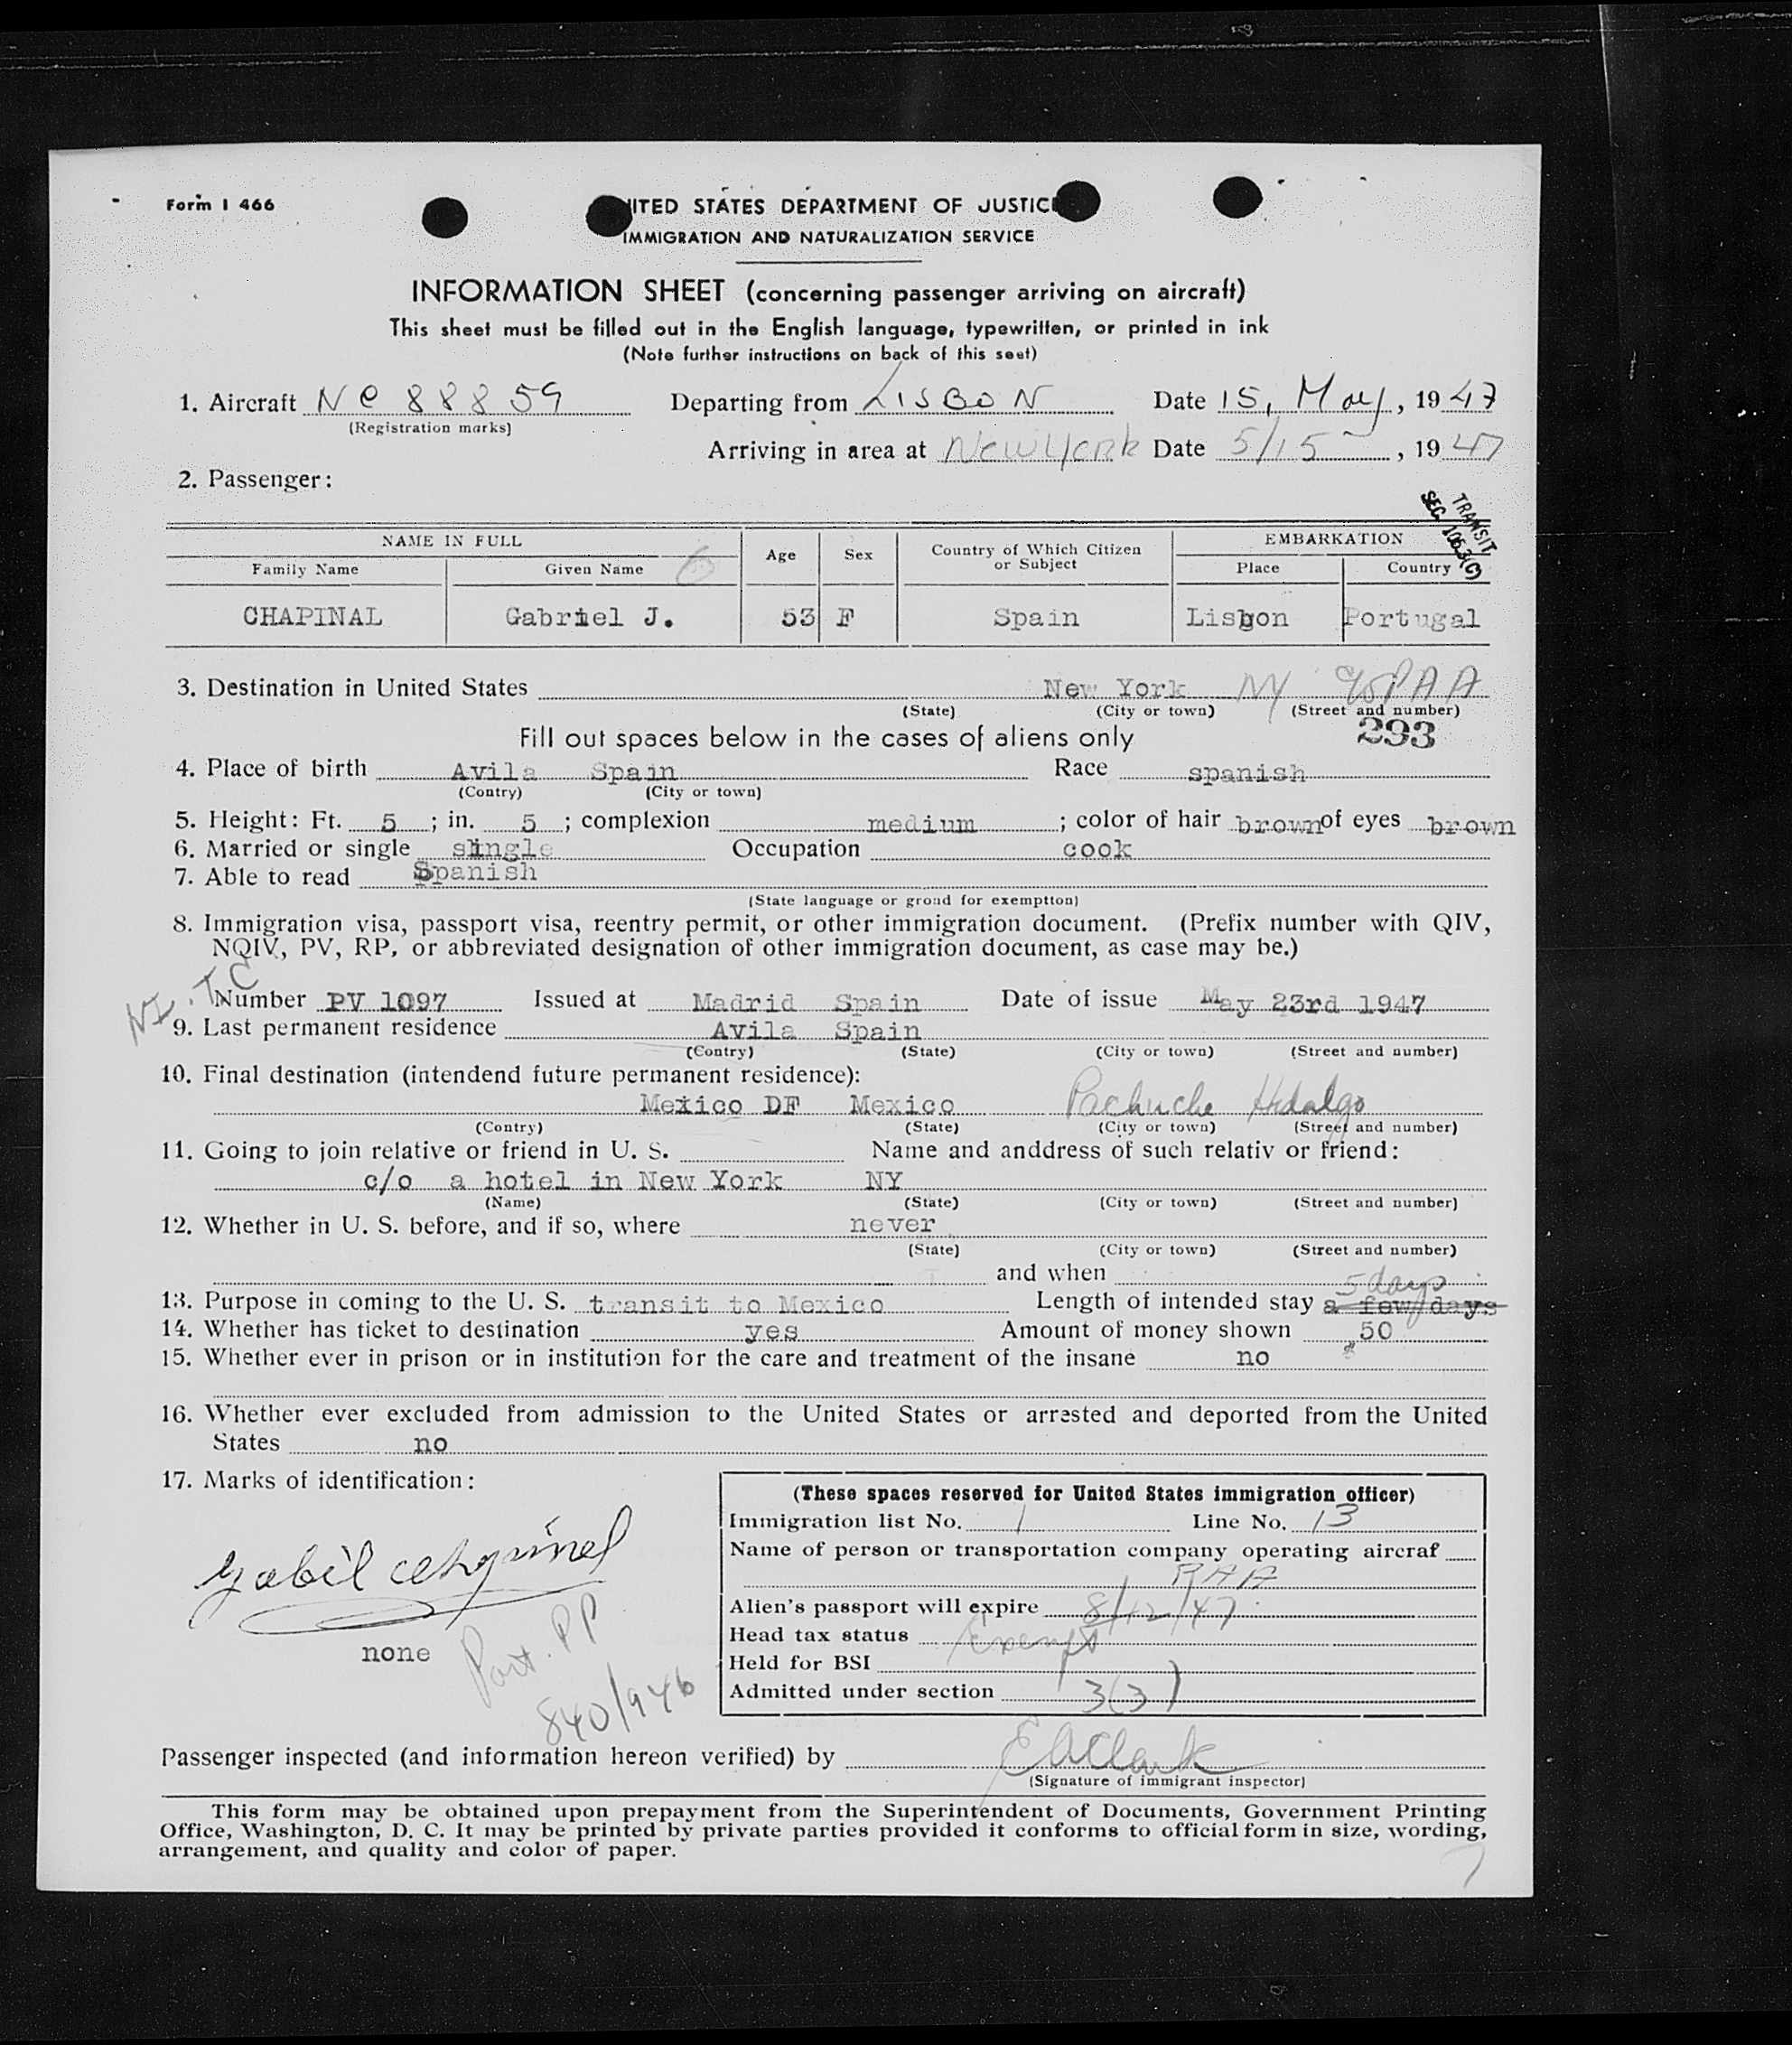 Form I 466
NITED STATES DEPARTMENT OF JUSTIC
IMMIGRATION AND NATURALIZATION SERVICE
INFORMATION SHEET (concerning passenger arriving on aircraft)
This sheet must be filled out in the English language, typewritten, or printed in ink
(Note further instructions on back of this seet)
1. Aircraft NC 88859 Departing from LISBON Date 15, May, 1947
(Registration marks)
Arriving in area at New York Date 5/15, 1947
2. Passenger:
TRANSIT
SEC. 106.3(C)
NAME IN FULL Age Sex Country of Which Citizen or Subject EMBARKATION
Family Name Given Name 6 Place Country
CHAPINAL Gabriel J. 53 F Spain Lisbon Portugal
3. Destination in United States New York NY % PAA
(State) (City or town) (Street and number)
Fill out spaces below in the cases of aliens only 293
4. Place of birth Avila Spain Race spanish
(Contry) (City or town)
5. Height: Ft. 5; in. 5; complexion medium; color of hair brown of eyes brown
6. Married or single single Occupation cook
7. Able to read Spanish
(State language or grond for exemptton)
8. Immigration visa, passport visa, reentry permit, or other immigration document. (Prefix number with QIV,
NQIV, PV, RP, or abbreviated designation of other immigration document, as case may be.)
NI. TC
Number PV 1097 Issued at Madrid Spain Date of issue May 23rd 1947
9. Last permanent residence Avila Spain
(Contry) (State) (City or town) (Street and number)
10. Final destination (intendend future permanent residence):
Mexico DF Mexico Pachuche Hidalgo
(Contry) (State) (City or town) (Street and number)
11. Going to join relative or friend in U. S. Name and anddress of such relativ or friend:
c/o a hotel in New York NY
(Name) (State) (City or town) (Street and number)
12. Whether in U. S. before, and if so, where never
(State) (City or town) (Street and number)
and when
5 days
13. Purpose in coming to the U. S. transit to Mexico Length of intended stay a few days
14. Whether has ticket to destination yes Amount of money shown 50
15. Whether ever in prison or in institution for the care and treatment of the insane no
16. Whether ever excluded from admission to the United States or arrested and deported from the United
States no
17. Marks of identification:
none
Port. PP
840/946
(These spaces reserved for United States immigration officer)
Immigration list No. 1 Line No. 13
Name of person or transportation company operating aircraf
PAA
Alien's passport will expire 8/12/47
Head tax status Exempt
Held for BSI
Admitted under section 3(3)
Passenger inspected (and information hereon verified) by EAClark
(Signature of immigrant inspector)
This form may be obtained upon prepayment from the Superintendent of Documents, Government Printing
Office, Washington, D. C. It may be printed by private parties provided it conforms to official form in size, wording,
arrangement, and quality and color of paper.